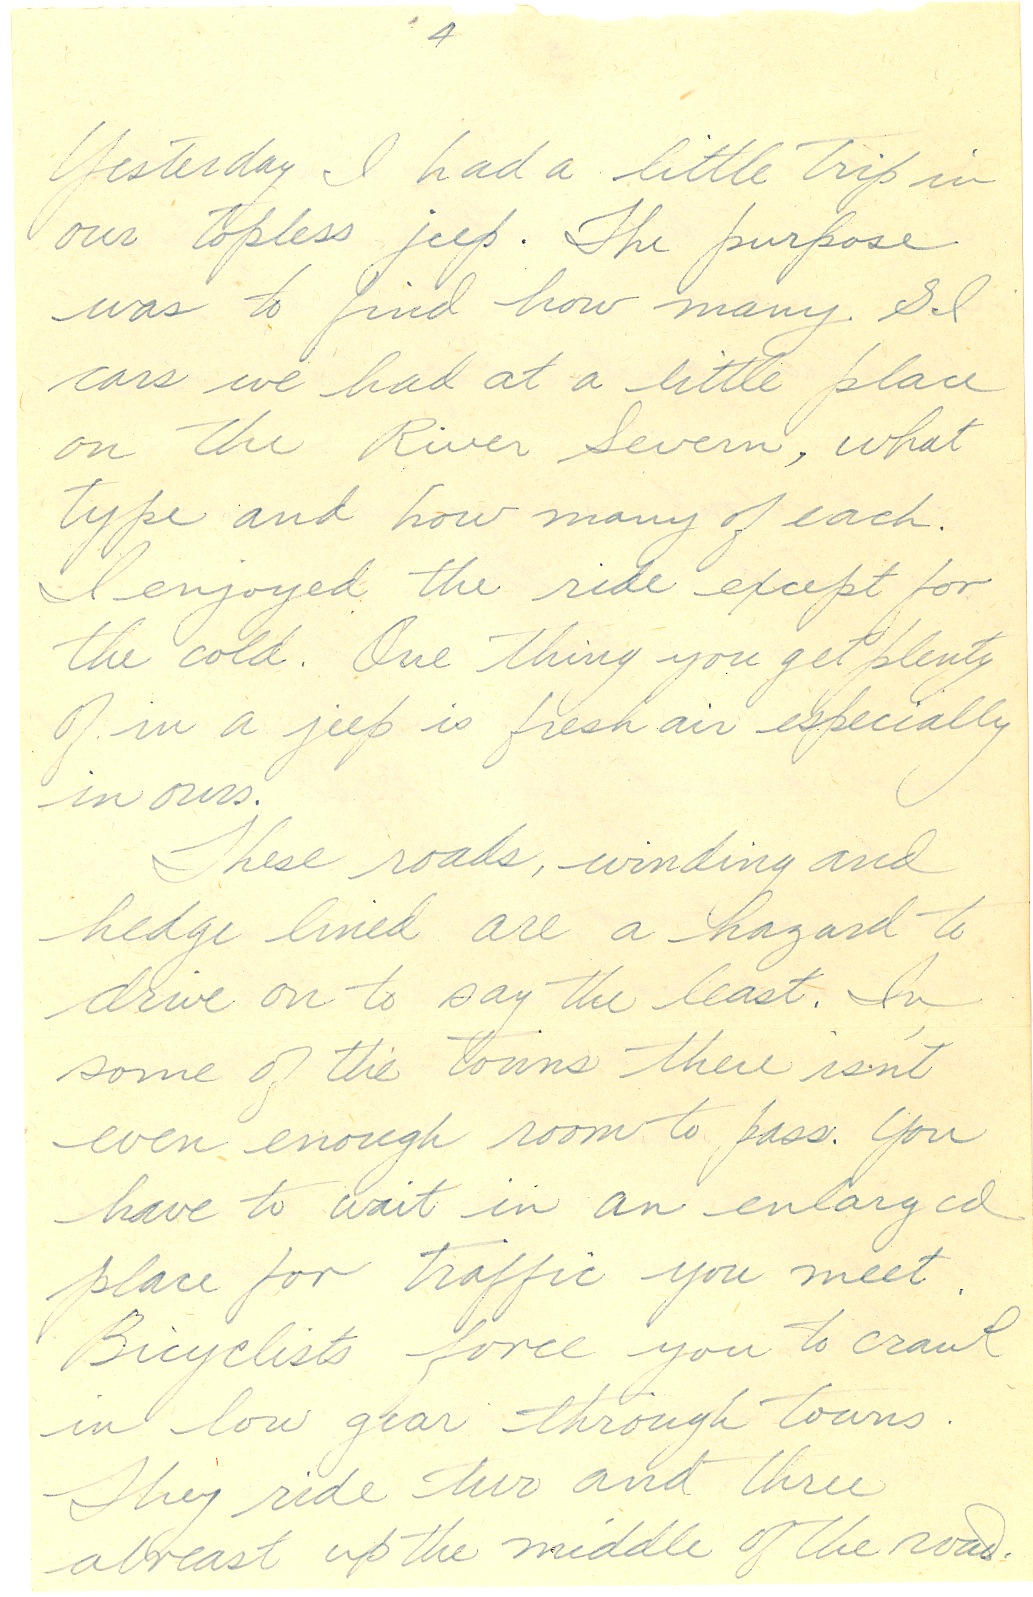 4
Yesterday I had a little trip in
our topless jeep. The purpose
was to find how many S.I
cars we had at a little place
on the River Severn, what
type and how many of each.
I enjoyed the ride except for
the cold. One thing you get plenty
of in a jeep is fresh air especially
in ours.
These roads, winding and
hedge lined are a hazard to
drive on to say the least. In
some of the towns there isn't
even enough room to pass. You
have to wait in an enlarged
place for traffic you meet.
Bicyclists force you to crawl
in low gear through towns.
They ride two and three
abreast up the middle of the road.